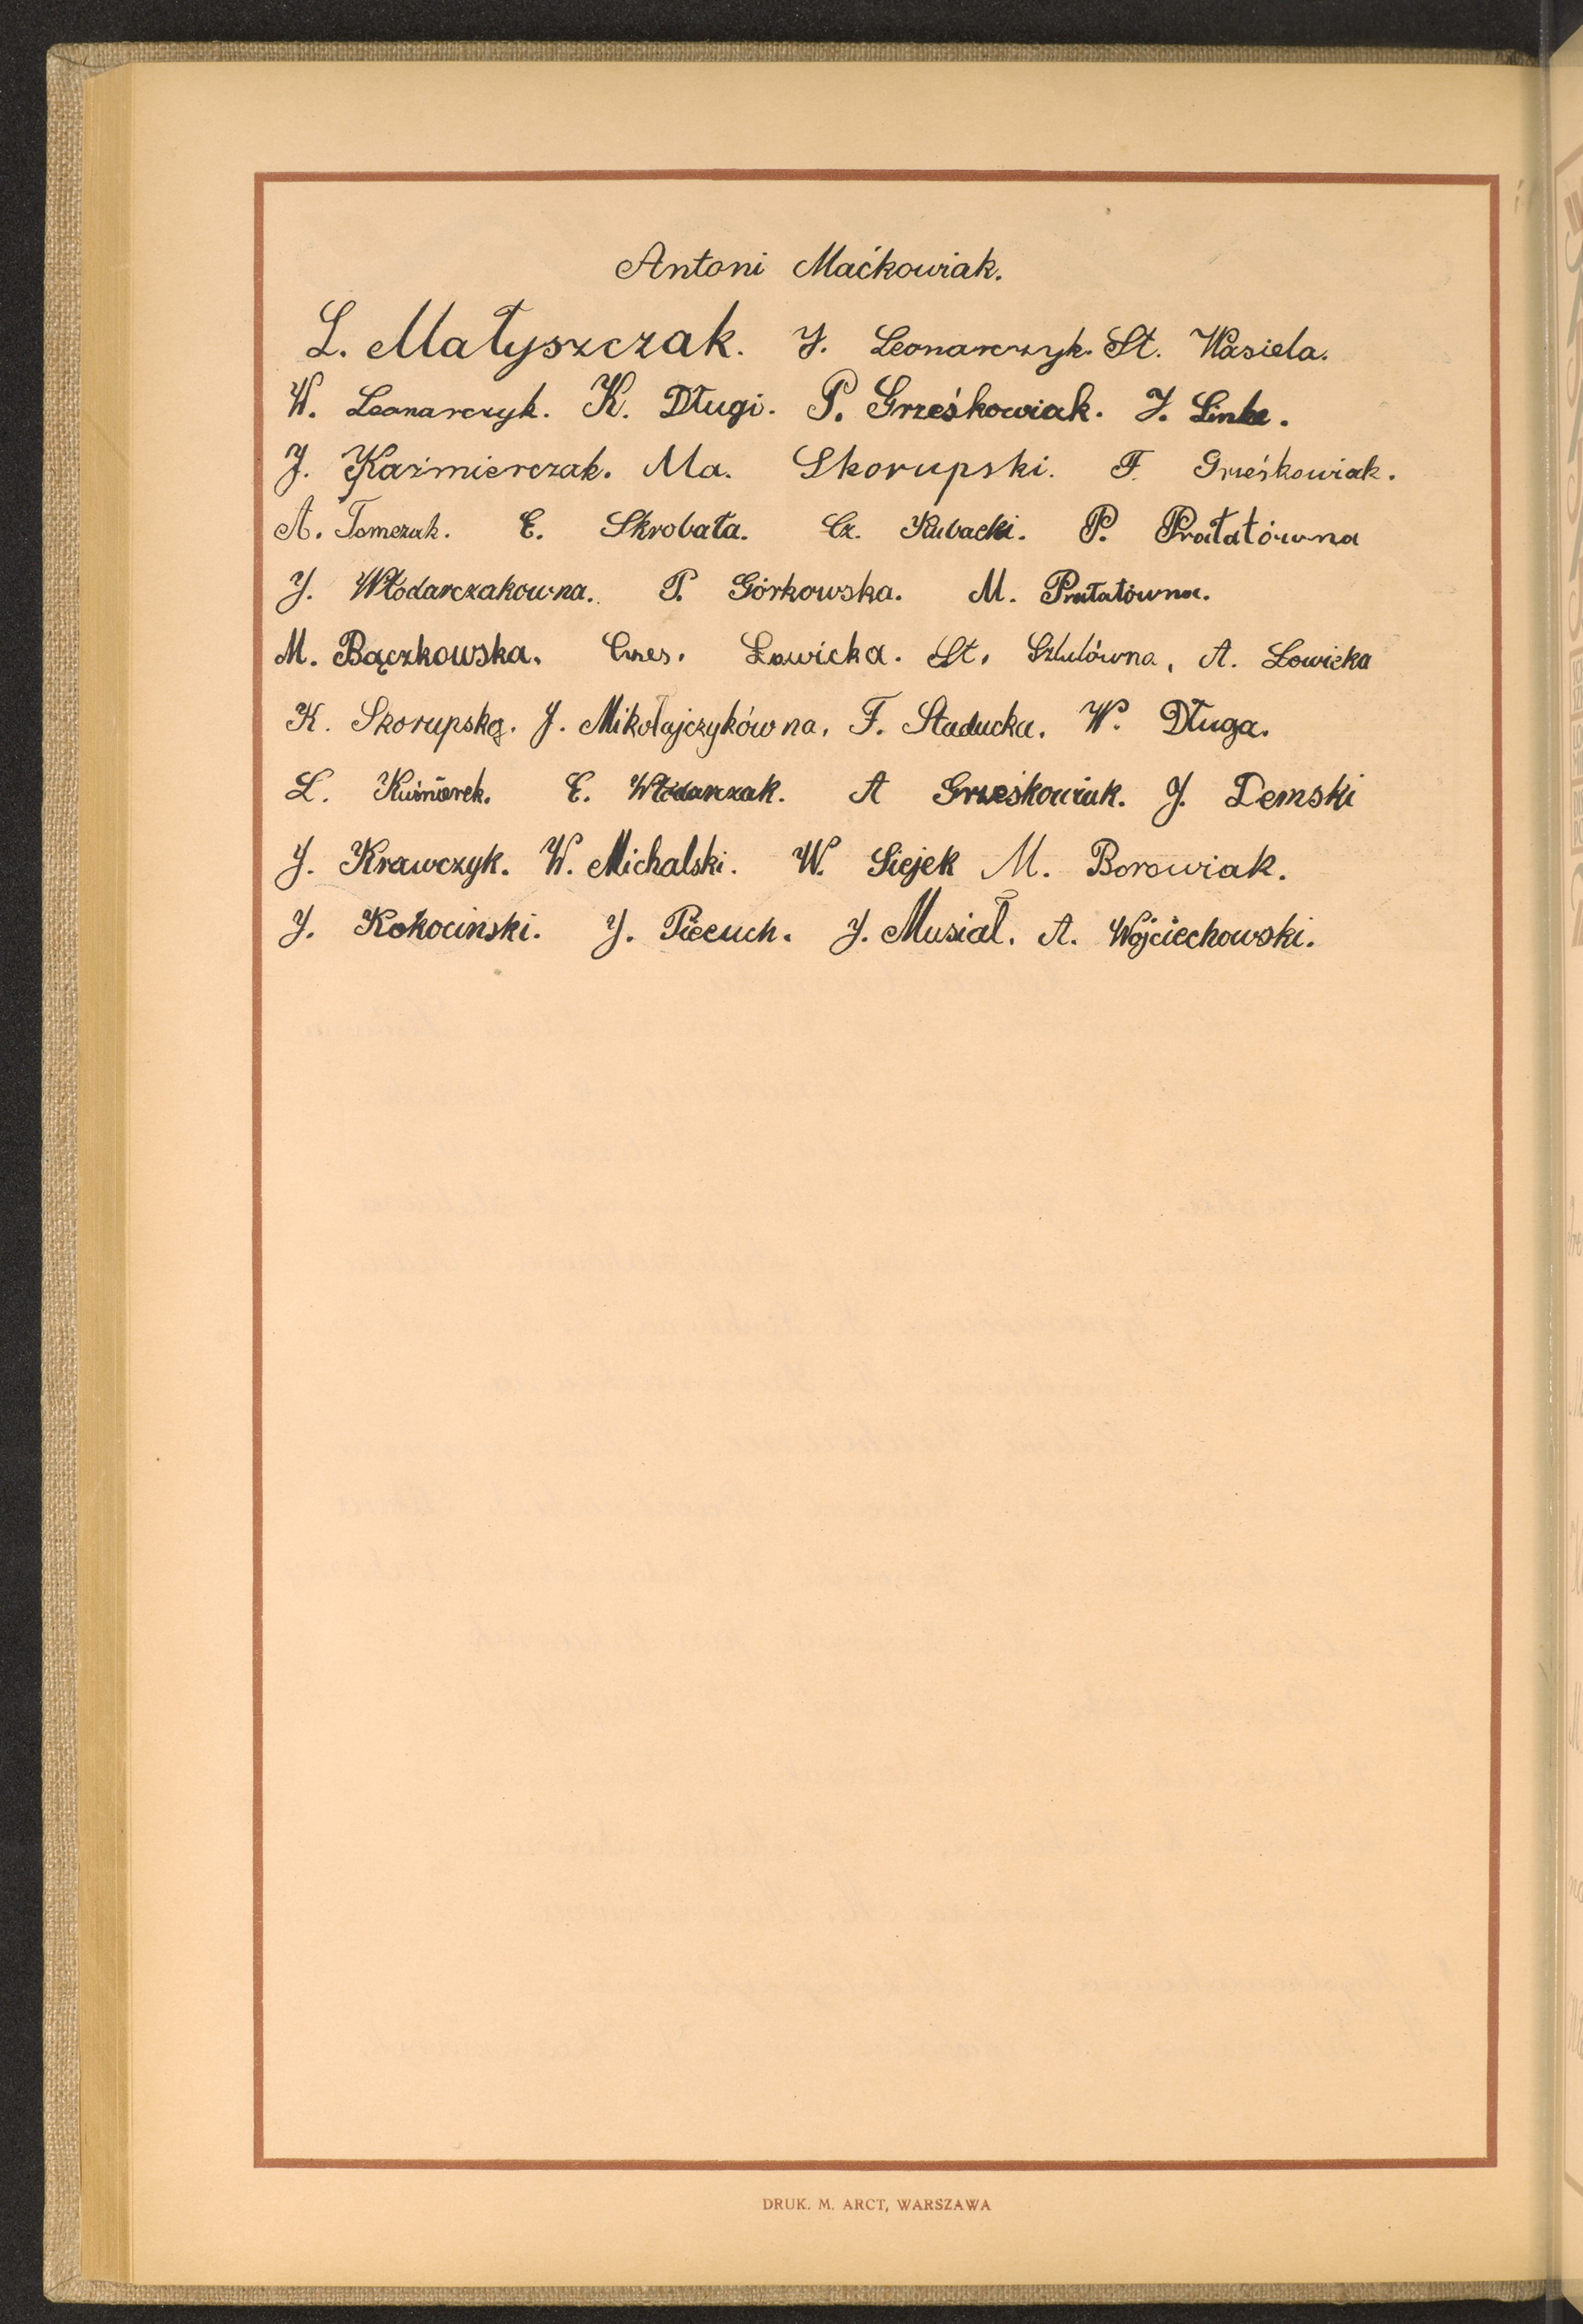 Antoni Maćkowiak.
L. Małyszczak. J. Leonarczyk. St. Wasiela.
W. Leonarczyk. K. Długi. P. Grześkowiak. J. Linke.
J. Kaźmierczak. Ma. Skorupski. F. Grześkowiak.
A. Tomczak. E. Skrobała. Cz. Kubacki. P. Prałatówna
J. Włodarczakowna. P. Górkowska. M. Prałatówna.
M. Bączkowska. Czes. Ławicka. St. Szlulówna, A. Łowicka
K. Skorupska. J. Mikołajczykówna, F. Staducka. W. Długa.
L. Kuśnierek. E. Włodarczak. A Grześkowiak. J. Demski
J. Krawczyk. W. Michalski. W. Siejek M. Borowiak.
J. Kokocinski. J. Piecuch. J. Musiał. A. Wojciechowski.
DRUK. M. ARCT, WARSZAWA